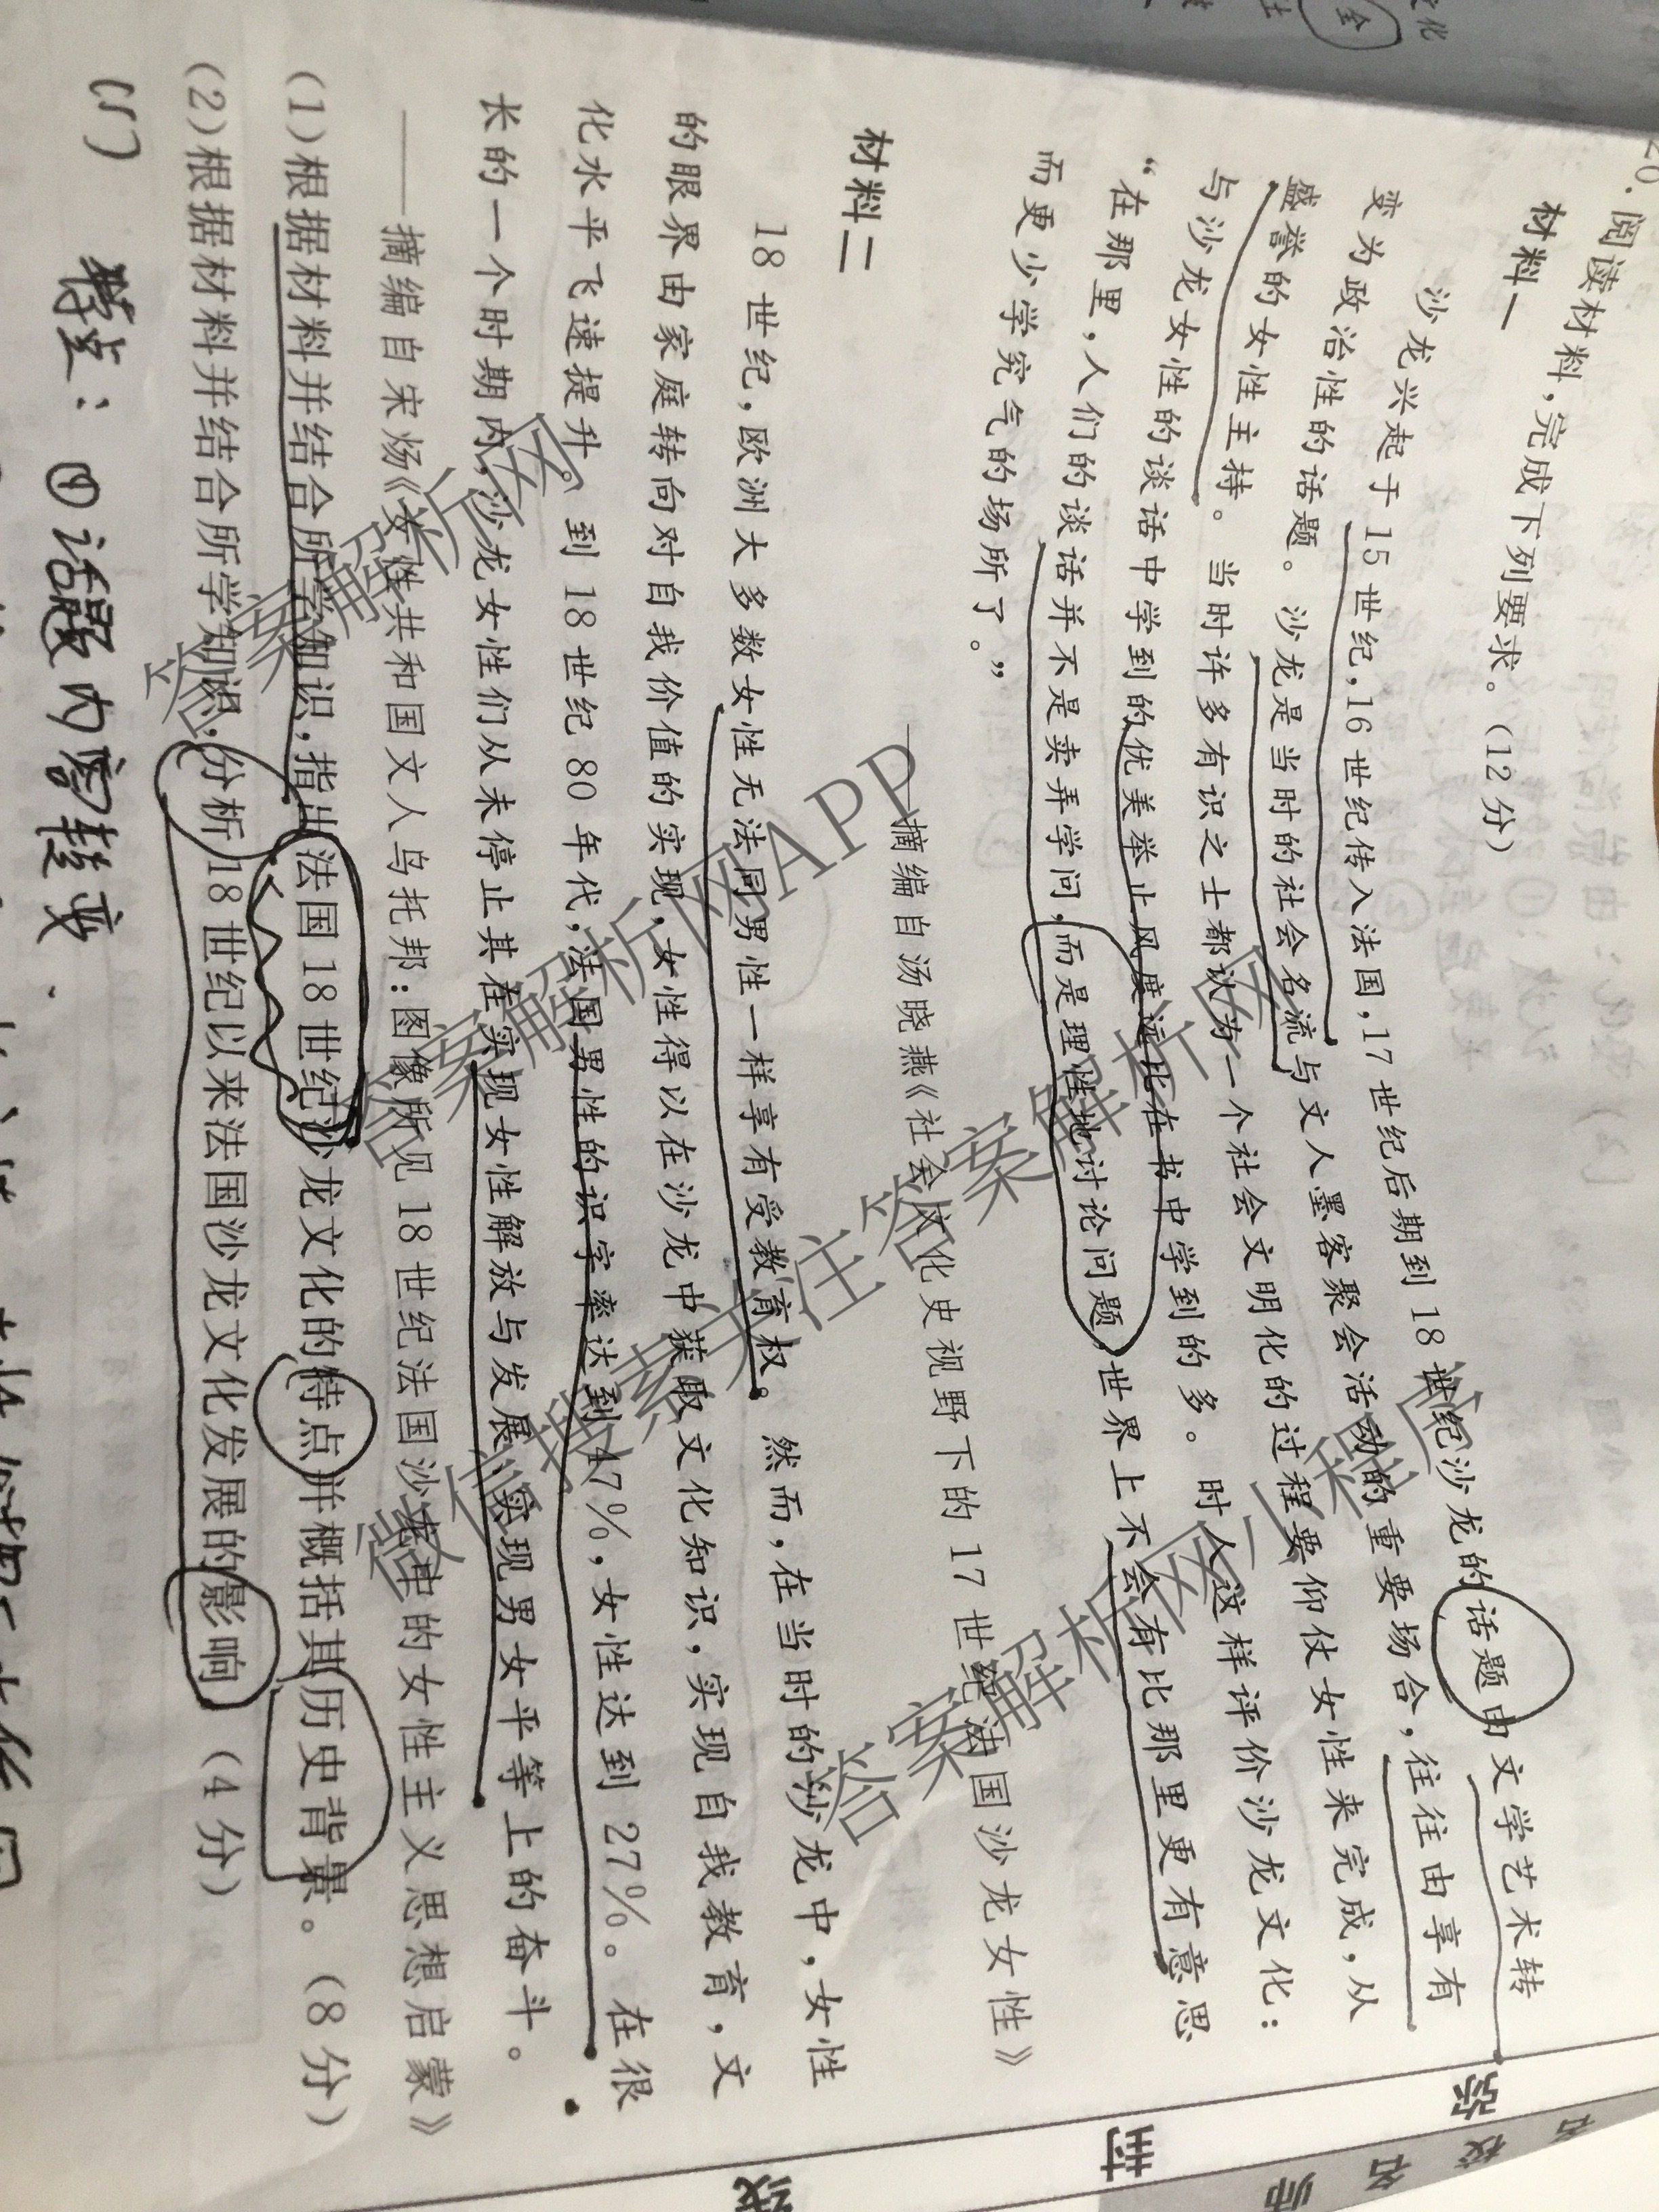 20.阅读材料,完成下列要求。(12分)
材料一
沙龙兴起于15世纪,16世纪传入法国,17世纪后期到18世纪沙龙的话题由文学艺术转
变为政治性的话题。沙龙是当时的社会名流与文人墨客聚会活动的重要场合,往往由享有
盛誉的女性主持。当时许多有识之士都认为一个社会文明化的过程要仰仗女性来完成,从
与沙龙女性的谈话中学到的优美举止风度远比在书中学到的多。时人这样评价沙龙文化:
“在那里,人们的谈话并不是卖弄学问,而是理性地讨论问题,世界上不会有比那里更有意思
而更少学究气的场所了。”
——摘编自汤晓燕《社会文化史视野下的17世纪法国沙龙女性》
材料二
18世纪,欧洲大多数女性无法同男性一样享有受教育权。然而,在当时的沙龙中,女性
的眼界由家庭转向对自我价值的实现,女性得以在沙龙中获取文化知识,实现自我教育,文
化水平飞速提升。到18世纪80年代,法国男性的识字率达到47%,女性达到27%。在很
长的一个时期内,沙龙女性们从未停止其在实现女性解放与发展、实现男女平等上的奋斗。
——摘编自宋炀《女性共和国文人乌托邦:图像所见18世纪法国沙龙中的女性主义思想启蒙》
(1)根据材料并结合所学知识,指出法国18世纪沙龙文化的特点并概括其历史背景。(8分)
(2)根据材料并结合所学知识,分析18世纪以来法国沙龙文化发展的影响。(4分)
(1) 特点:①话题内容转变